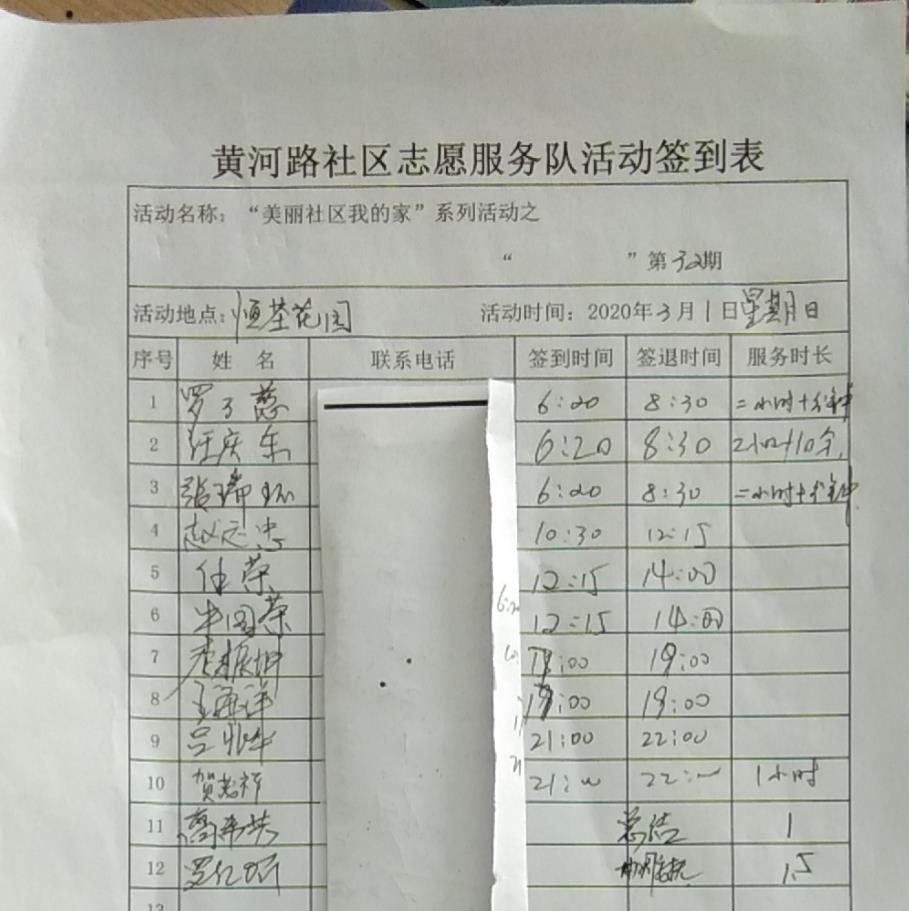 黄河路社区志愿服务队活动签到表
活动名称：“美丽社区我的家”系列活动之
“ ”第32期
活动地点：恒基花园 活动时间：2020年3月1日星期日
序号 姓 名 联系电话 签到时间 签退时间 服务时长
1 罗子慈 6:20 8:30 二小时十分钟
2 汪庆东 6:20 8:30 2小时10分
3 张瑞环 6:20 8:30 二小时十分钟
4 赵远忠 10:30 12:15
5 任荣 12:15 14:00
6 牛国荣 12:15 14:00
7 李振坤 :00 19:00
8 王海洋 :00 19:00
9 吕 21:00 22:00
10 贺志祥 21: 22: 1小时
11 总结 1
12 罗红 1.5
13